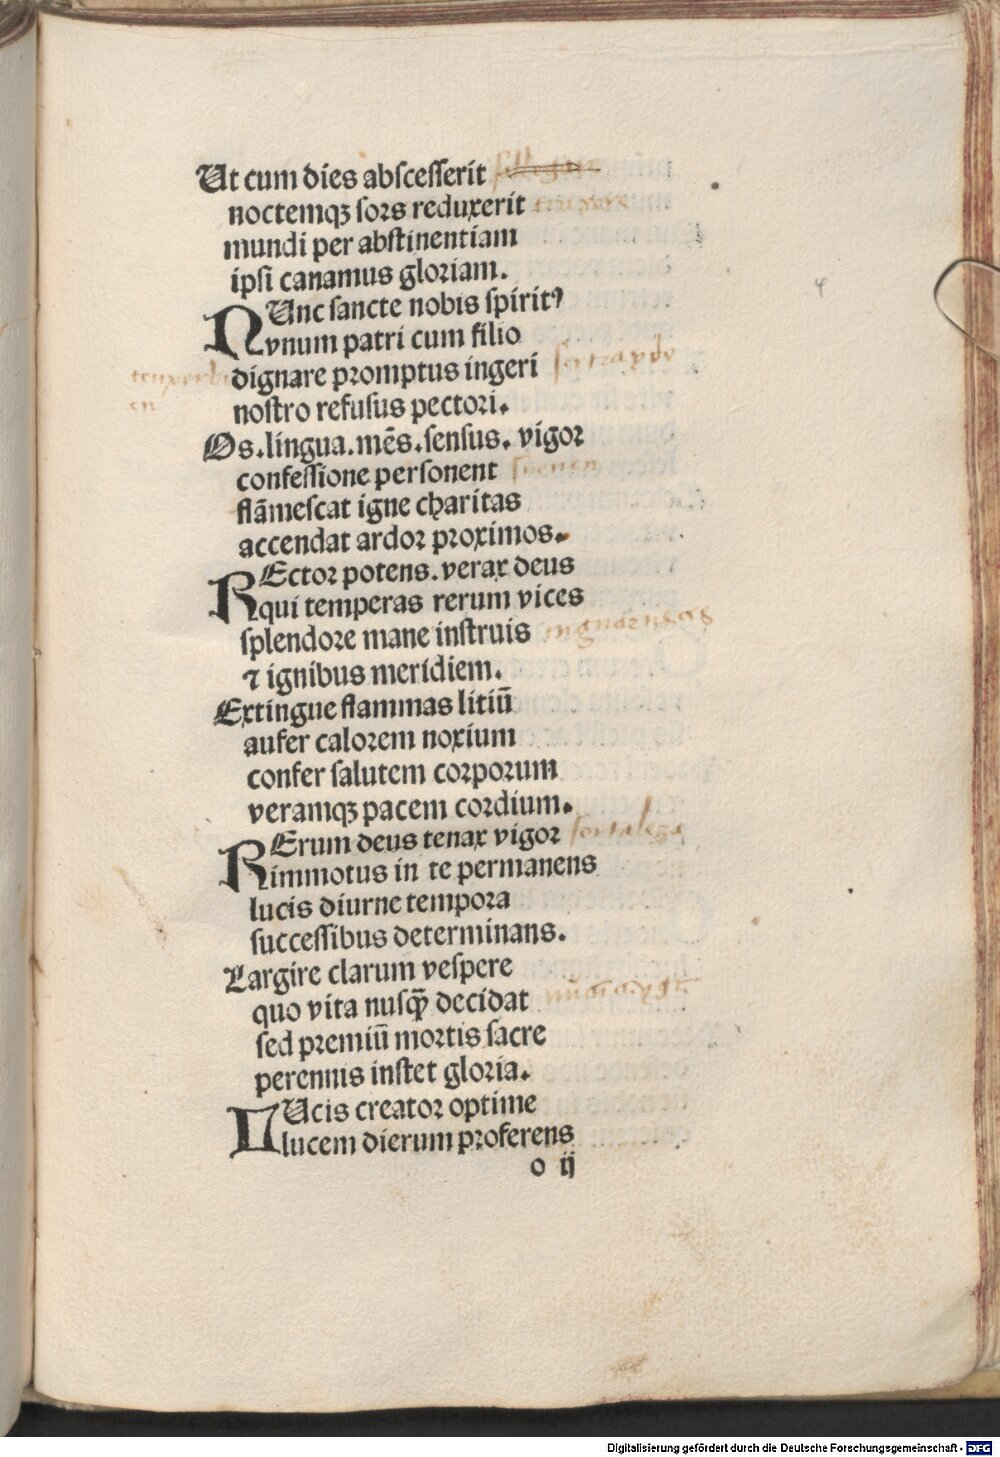 Ut cum dies abscesserit
noctemqꝫ sors reduxerit
mundi per abstinentiam
ipsi canamus gloriam.
NUnc sancte nobis spiritꝰ
vnum patri cum filio
dignare promptus ingeri
nostro refusus pectori.
Os.lingua.mēs.sensus. vigor
confessione personent
flāmescat igne charitas
accendat ardor proximos.
REctor potens.verax deus
qui temperas rerum vices
splendore mane instruis
⁊ ignibus meridiem.
Extingue flammas litiū
aufer calorem noxium
confer salutem corporum
veramqꝫ pacem cordium.
RErum deus tenax vigor
immotus in te permanens
lucis diurne tempora
successibus determinans.
Largire clarum vespere
quo vita nusq̄ decidat
sed premiū mortis sacre
perennis instet gloria.
LUcis creator optime
lucem dierum proferens
o ij
Digitalisierung gefördert durch die Deutsche Forschungsgemeinschaft - DFG